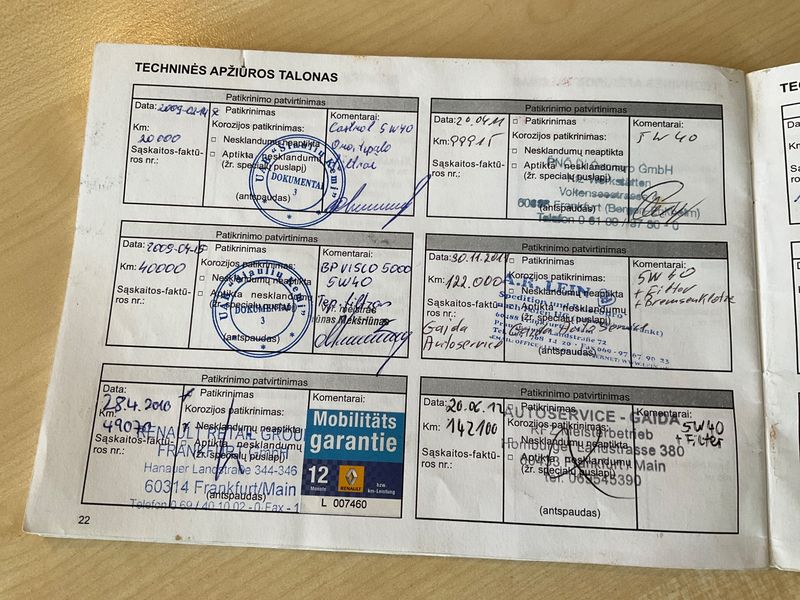 TECHNINĖS APŽIŪROS TALONAS
Patikrinimo patvirtinimas
Data: 2009-02-14
Patikrinimas
Komentarai:
Castrol 5W40
Km: 20000
Korozijos patikrinimas:
Nesklandumų neaptikta
Sąskaitos-faktūros nr.:
Aptikta nesklandumų
(žr. specialų puslapį)
(antspaudas)
UAB "Šiaulių
DOKUMENTAI
3
Patikrinimo patvirtinimas
Data: 20.04.11
Patikrinimas
Komentarai:
5W40
Km: 99915
Korozijos patikrinimas:
Nesklandumų neaptikta
Sąskaitos-faktūros nr.:
Aptikta nesklandumų
(žr. specialų puslapį)
GmbH
Kfz.-Werkstätten
60388 Frankfurt
Telefon 0 61 09
(antspaudas)
Patikrinimo patvirtinimas
Data: 2009-04-15
Patikrinimas
Komentarai:
BP VISCO 5000
5W40
Tep. filtras
Km: 40000
Korozijos patikrinimas:
Nesklandumų neaptikta
Sąskaitos-faktūros nr.:
Aptikta nesklandumų
(žr. specialų puslapį)
(antspaudas)
UAB "Šiaulių
DOKUMENTAI
3
Mekšriūnas
Patikrinimo patvirtinimas
Data: 30.11.2011
Patikrinimas
Komentarai:
5W40
+ Filter
+ Bremsenklötze
Km: 122.000
Korozijos patikrinimas:
Nesklandumų neaptikta
Sąskaitos-faktūros nr.:
Aptikta nesklandumų
(žr. specialų puslapį)
Gaida
Autoservice
A.R.KLEIN
Spedition
(antspaudas)
Patikrinimo patvirtinimas
Data:
28.4.2010
Patikrinimas
Komentarai:
Km:
49070
Korozijos patikrinimas:
Nesklandumų neaptikta
Sąskaitos-faktūros nr.:
Aptikta nesklandumų
(žr. specialų puslapį)
RENAULT RETAIL GROUP
FRANKFURT GmbH
Hanauer Landstraße 344-346
60314 Frankfurt/Main
Telefon 0 69 / 40 10 02 - 0 Fax - 1
(antspaudas)
Mobilitäts
garantie
12
Monate
RENAULT
bzw.
km-Leistung
L 007460
Patikrinimo patvirtinimas
Data: 20.06.12
Patikrinimas
Komentarai:
5W40
+ Filter
Km: 142100
Korozijos patikrinimas:
Nesklandumų neaptikta
Sąskaitos-faktūros nr.:
Aptikta nesklandumų
(žr. specialų puslapį)
AUTOSERVICE - GAIDA
KFZ Meisterbetrieb
Homburger Landstrasse 380
60433 Frankfurt/Main
Tel. 069545390
(antspaudas)
22